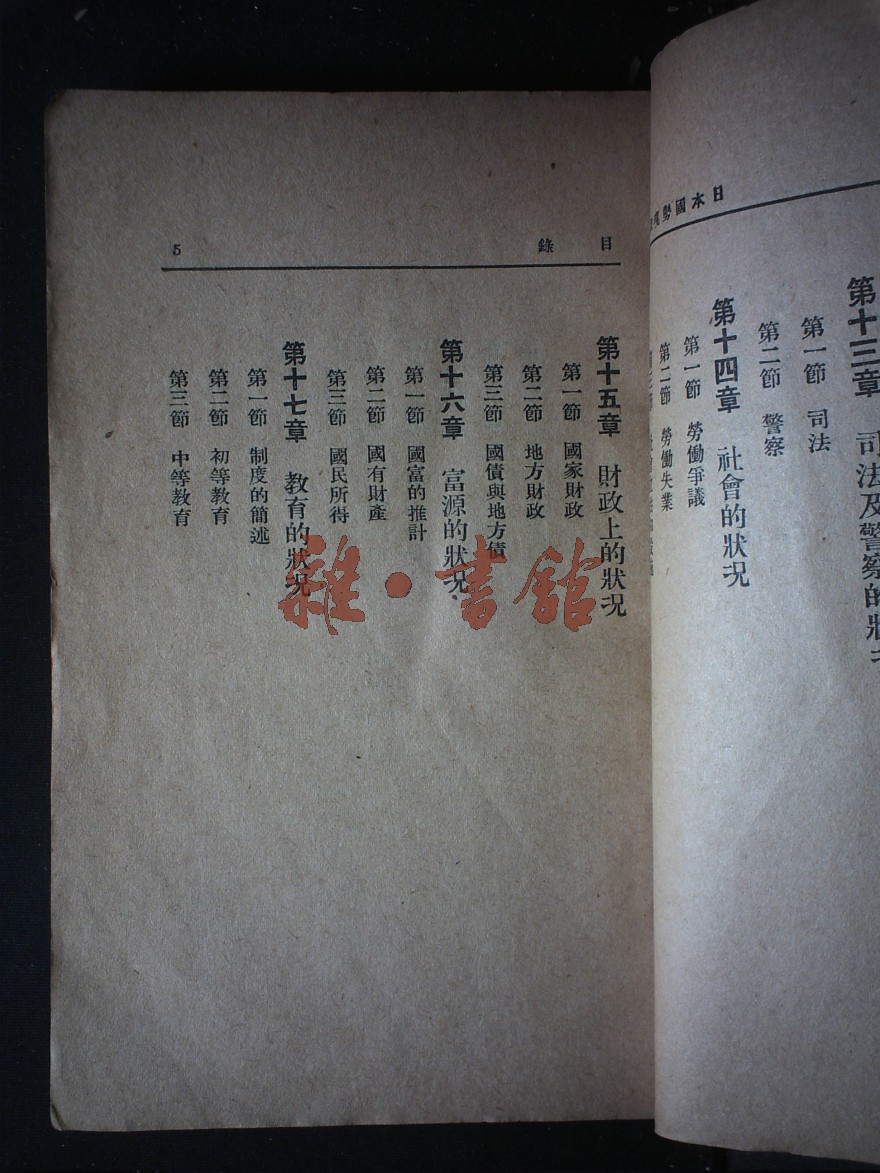 日本國勢
第十三章 司法及警察的狀
第一節 司法
第二節 警察
第十四章 社會的狀况
第一節 勞働爭議
第二節 勞働失業
目錄 5
第十五章 財政上的狀况
第一節 國家財政
第二節 地方財政
第三節 國債與地方債
第十六章 富源的狀况
第一節 國富的推計
第二節 國有財產
第三節 國民所得
第十七章 教育的狀况
第一節 制度的簡述
第二節 初等教育
第三節 中等教育
雜·書館